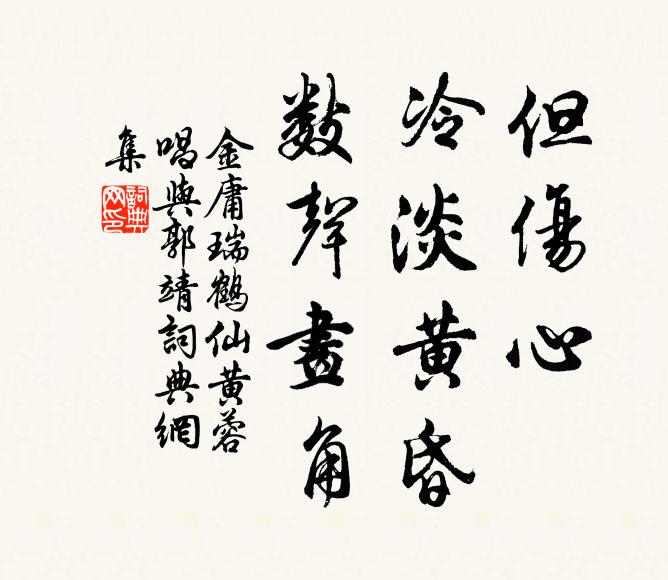 但傷心
冷淡黃昏
數聲畫角
金庸瑞鶴仙黃蓉
唱與郭靖詞典網
集
詞典
网印